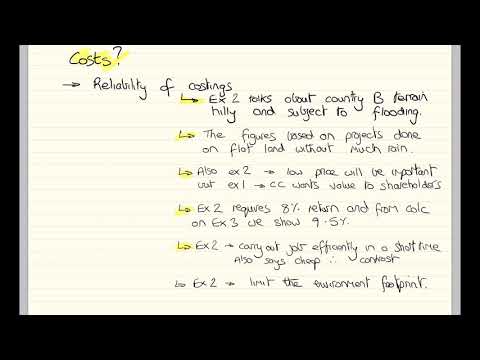 Costs?
→ Reliability of costings
↳ Ex 2 talks about country B terrain
hilly and subject to flooding.
↳ The figures based on projects done
on flat land without much rain.
↳ Also ex2 → low price will be important
but ex1 → CC wants value to shareholders
↳ Ex 2 requires 8% return and from calc
on Ex 3 we show 9.5%
↳ Ex2 → carry out job efficiently in a short time
Also says cheap ∴ contrast
↳ Ex 2 → limit the environment footprint.